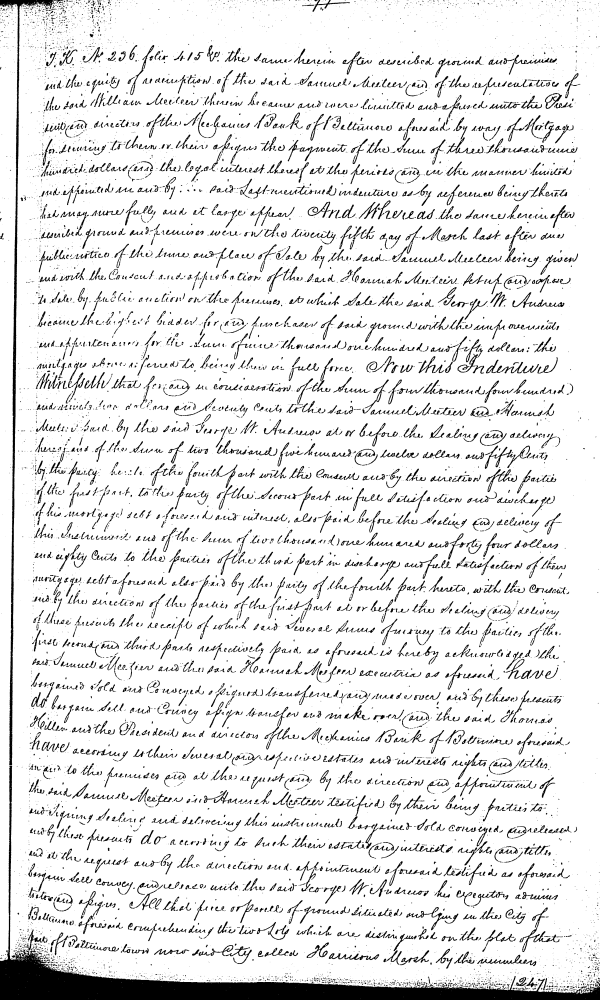 T.K. No 236. folio 415 &c. the same herein after described ground and premises
and the equity of redemption of the said Samuel Meeteer and of the representatives of
the said William Meeteer therein became and were limitted and assured unto the Presi
dent and directors of the Mechanics Bank of Baltimore aforesaid by way of Mortgage
for securing to them or their assigns the payment of the sum of three thousand nine
hundred dollars and the legal interest thereof at the periods and in the manner limited
and appointed in and by said Last mentioned indenture as by reference being thereto
had may more fully and at large appear. And Whereas the same herein after
described ground and premises were on the twenty fifth day of March last after due
public notice of the time and place of Sale by the said Samuel Meeteer being given
and with the Consent and approbation of the said Hannah Meeteer set up and expose
to Sale by public auction on the premises, at which Sale the said George W. Andrews
became the highest bidder for, and purchaser of said ground with the improvements
and appurtenances for the Sum of nine thousand one hundred and fifty dollars; the
mortgage above referred to, being then in full force. Now this Indenture
Witnesseth, that for, and in consideration of the Sum of four thousand four hundred
and ninety two dollars and Seventy Cents to the said Samuel Meeteer and Hannah
Meeteer paid by the said George W. Andrews at or before the Sealing and delivery
hereof and of the Sum of two thousand five hundred and twelve dollars and fifty Cents
by the party hereto of the fourth part with the Consent and by the direction of the parties
of the first part, to the party of the Second part in full satisfaction and discharge
of his mortgage debt aforesaid and interest, also paid before the Sealing and delivery of
this Instrument and of the Sum of two thousand one hundred and forty four dollars
and eighty Cents to the parties of the third part in discharge and full satisfaction of their
mortgage debt aforesaid also paid by the party of the fourth part hereto, with the Consent
and by the direction of the parties of the first part at or before the Sealing and delivery
of these presents the receipt of which said Several Sums of money to the parties of the
first second and third parts respectively paid as aforesaid is hereby acknowledged the
said Samuel Meeteer and the said Hannah Meeteer executrix as aforesaid have
bargained Sold and Conveyed assigned transferred and made over and by these presents
do bargain sell and Convey assign transfer and make over and the said Thomas
Hillen and the President and directors of the Mechanics Bank of Baltimore aforesaid
have according to their Several and respective estates and interests rights and titles
in and to the premises and at the request and by the direction and appointment of
the said Samuel Meeteer and Hannah Meeteer testified by their being parties to
and signing Sealing and delivering this instrument bargained Sold conveyed and released
and by these presents do according to such their estates and interests rights and titles
and at the request and by the direction and appointment aforesaid testified as aforesaid
bargain sell convey and release unto the said George W. Andrews his executors adminis
trators and assigns. All that piece or parcell of ground situated and lying in the City of
Baltimore aforesaid comprehending the two Lots which are distinguished on the plat of that
part of Baltimore town now said City called Harrisons Marsh, by the numbers
247